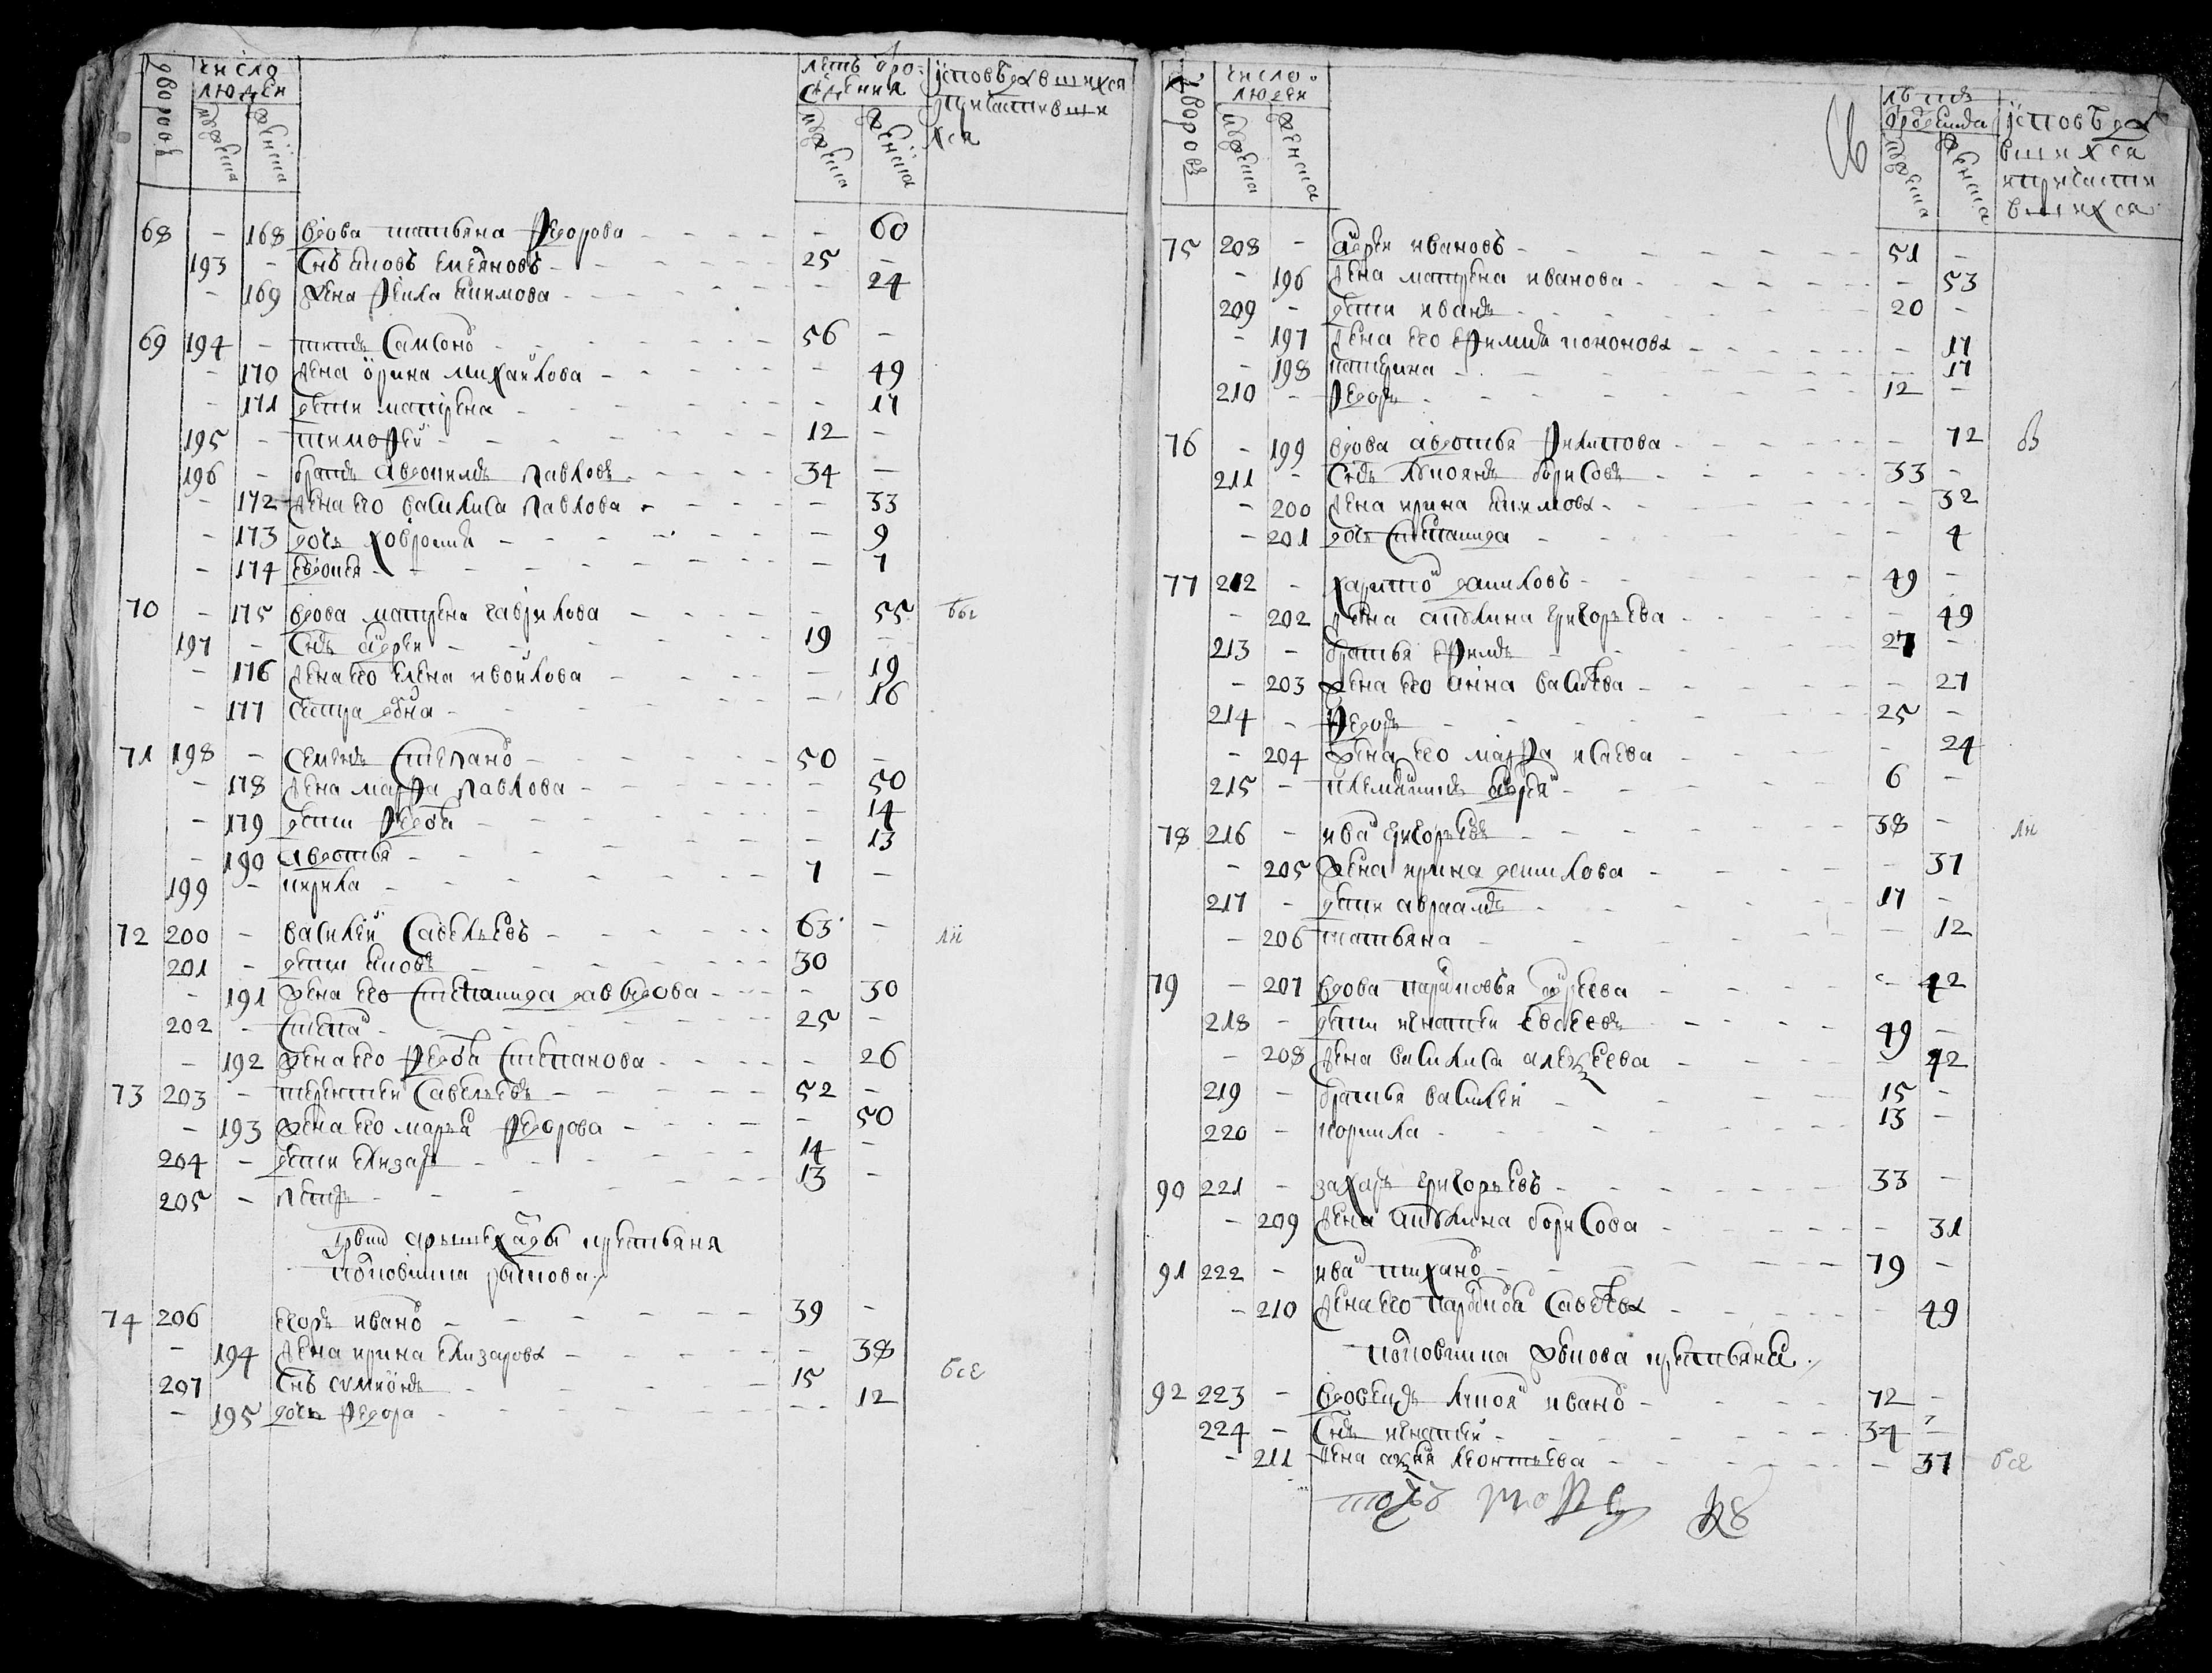 дворовъ
число людеи
мужеска
женска
летъ от рождения
мужеска
женска
исповедавшихся и причастившихся
68 – 168 вдова татьяна Федорова – 60
193 – снъ яковъ емеяновъ 25 –
– 169 жена Фекла якимова – 24
69 194 – титъ самсоно 56 –
– 170 жена орина михаилова – 49
– 171 дети матрена – 17
195 – тимофеи 12 –
196 – братъ авдокимъ павловъ 34 –
– 172 жена его василиса павлова – 33
– 173 дочь ховроня – 9
– 174 евдокея – 7
70 – 175 вдова матрена гаврилова – 55 бы
197 – снъ андреи 19 –
– 176 жена его елена ивоилова – 19
– 177 сестра – 16
71 198 – семенъ степано 50 –
– 178 жена марфа павлова – 50
– 179 дети Федося – 14
– 190 авдотья – 13
199 – кирила 7 –
72 200 – василеи савельевъ 63 –
201 – дети яковъ 30
– 191 жена его степанида давыдова – 30
202 – степа 25 –
– 192 жена его Федося степанова – 26
73 203 – терентеи савельевъ 52 –
– 193 жена его марья Федорова – 50
204 – дети елизаръ 14 –
205 – петръ 13 –
крестьяня
74 206 егоръ ивано 39 –
– 194 жена ирина елизарова – 38
207 снъ симионъ 15 все
– 195 дочь Федора – – 12
дворовъ
число людеи
мужеска
женска
мужеска
женска
исповедавшихся и причастившихся
75 208 – андреи ивановъ 51 –
– 196 жена матрена иванова – 53
209 – дети иванъ 20 –
– 197 жена его кононова – 17
– 198 катерина – 17
210 – Федоръ 12 –
76 – 199 вдова авдотья Филипова – 72
211 – снъ лукоянъ борисовъ 33 –
– 200 жена ирина якимова – 32
– 201 дочь степанида – 4
77 212 – харито даниловъ 49 –
– 202 жена акулина григорьева – 49
213 – братья ефимъ 27 –
– 203 жена его анна василева – 27
214 – Федоръ 25 –
– 204 жена его марфа исаева – 24
215 – племянникъ андреи 6 –
78 216 – ива григорьевъ 38 –
– 205 жена ирина данилова – 37
217 – дети авраамъ 17 –
– 206 татьяна – 12
79 – 207 вдова парасковья андреева – 42
218 – дети игнатеи евсеевъ 49 –
– 208 жена василиса алексеева – 42
219 – братья василеи 15 –
220 – корнила 13 –
90 221 – захаръ григорьевъ 33 –
– 209 жена акулина борисова – 31
91 222 – ива тихано 79 –
– 210 жена его савелева – 49
крестьяня
92 223 – вдовецъ лукоя ивано 72 –
224 – снъ игнатеи 34 –
– 211 жена аксиня леонтьева – 37 все